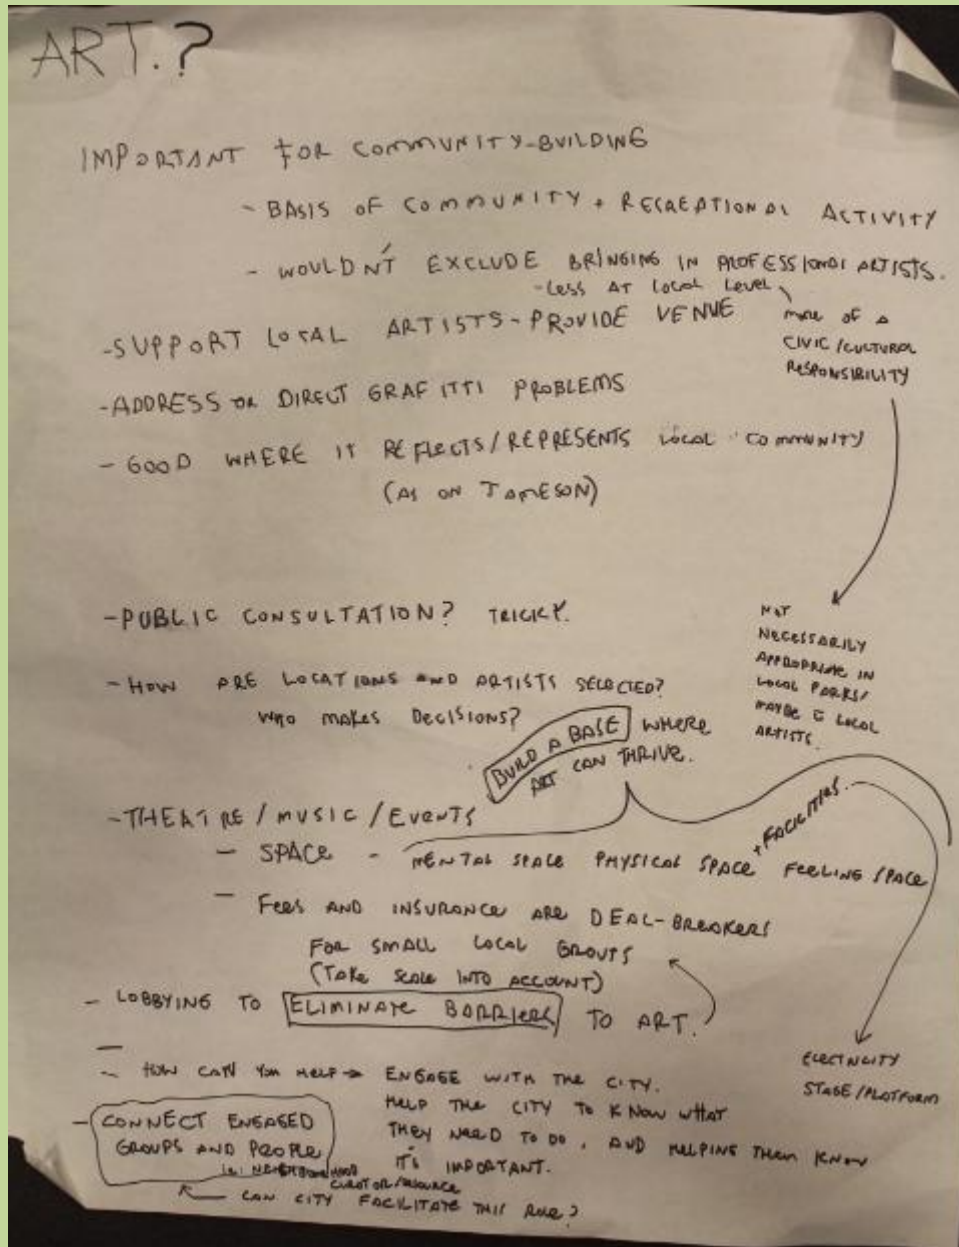 ART.?
IMPORTANT FOR COMMUNITY-BUILDING
- BASIS OF COMMUNITY + RECREATIONAL ACTIVITY
- WOULDN'T EXCLUDE BRINGING IN PROFESSIONAL ARTISTS.
- LESS AT LOCAL LEVEL
MORE OF A
CIVIC/CULTURAL
RESPONSIBILITY
- SUPPORT LOCAL ARTISTS - PROVIDE VENUE
- ADDRESS OR DIRECT GRAFITTI PROBLEMS
- GOOD WHERE IT REFLECTS/REPRESENTS LOCAL COMMUNITY
(AS ON JAMESON)
NOT
NECESSARILY
APPROPRIATE IN
LOCAL PARKS/
MAYBE LOCAL
ARTISTS.
- PUBLIC CONSULTATION? TRICKY.
- HOW ARE LOCATIONS AND ARTISTS SELECTED?
WHO MAKES DECISIONS?
BUILD A BASE WHERE
ART CAN THRIVE.
- THEATRE/MUSIC/EVENTS
- SPACE - MENTAL SPACE PHYSICAL SPACE + FACILITIES FEELING SPACE
- FEES AND INSURANCE ARE DEAL-BREAKERS
FOR SMALL LOCAL GROUPS
(TAKE SCALE INTO ACCOUNT)
- LOBBYING TO ELIMINATE BARRIERS TO ART.
ELECTRICITY
STAGE/PLATFORM
- HOW CAN YOU HELP → ENGAGE WITH THE CITY.
HELP THE CITY TO KNOW WHAT
THEY NEED TO DO, AND HELPING THEM KNOW
IT'S IMPORTANT.
- CONNECT ENGAGED
GROUPS AND PEOPLE
NEIGHBOURHOOD
CURATOR/RESOURCE
CAN CITY FACILITATE THIS ROLE?